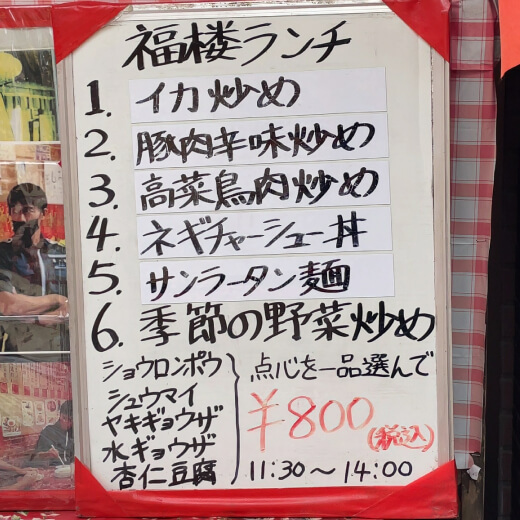 福楼ランチ
1. イカ炒め
2. 豚肉辛味炒め
3. 高菜鳥肉炒め
4. ネギチャーシュー丼
5. サンラータン麺
6. 季節の野菜炒め
ショウロンポウ
シュウマイ
ヤキギョウザ
水ギョウザ
杏仁豆腐
点心を一品選んで
¥800
(税込)
11:30〜14:00